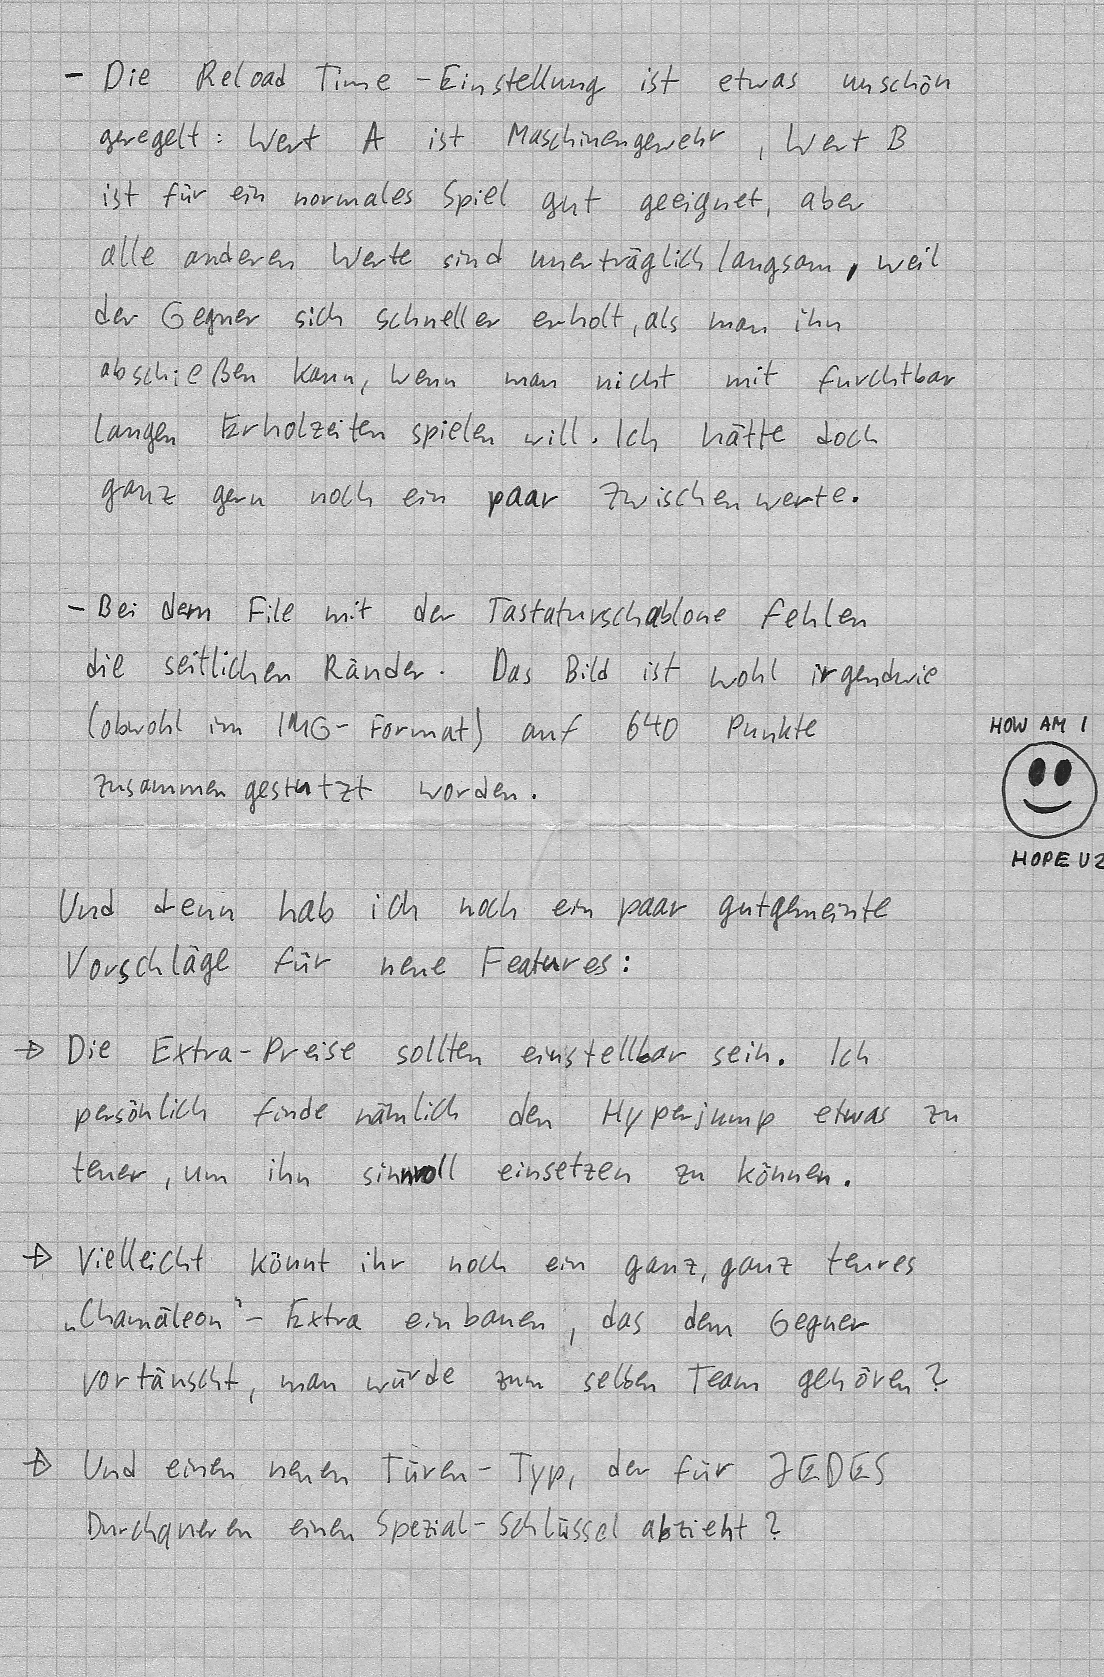 - Die Reload Time-Einstellung ist etwas unschön
geregelt: Wert A ist Maschinengewehr, Wert B
ist für ein normales Spiel gut geeignet, aber
alle anderen Werte sind unerträglich langsam, weil
der Gegner sich schneller erholt, als man ihn
abschießen kann, wenn man nicht mit furchtbar
langen Erholzeiten spielen will. Ich hätte doch
ganz gern noch ein paar Zwischenwerte.
- Bei dem File mit der Tastaturschablone fehlen
die seitlichen Ränder. Das Bild ist wohl irgendwie
(obwohl im IMG-Format) auf 640 Punkte
zusammengestutzt worden.
HOW AM I
HOPE U2
Und denn hab ich noch ein paar gutgemeinte
Vorschläge für neue Features:
→ Die Extra-Preise sollten einstellbar sein. Ich
persönlich finde nämlich den Hyperjump etwas zu
teuer, um ihn sinnvoll einsetzen zu können.
→ Vielleicht könnt ihr noch ein ganz, ganz teures
„Chamäleon"-Extra einbauen, das dem Gegner
vortäuscht, man würde zum selben Team gehören?
→ Und einen neuen Türen-Typ, der für JEDES
Durchqueren einen Spezial-Schlüssel abzieht?